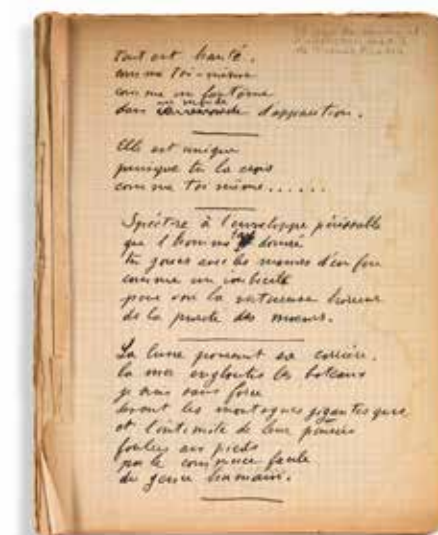 Tout est hanté.
comme toi-même
comme un fantôme
dans un monde d'apparition.
Elle est unique
puisque tu la crois
comme toi même......
Spectre à l'enveloppe périssable
que l'homme t'a donné
tu joues avec les
comme un imbécile
pour voir la vertueuse horreur
de la parole des moeurs.
La lune poursuit sa carrière,
la mer engloutit les bateaux
je suis sans force
devant les montagnes gigantesques
et l'intimité de leur pensées
foulées aux pieds
par le commerce facile
du genre humain.